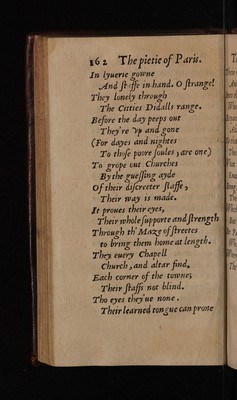 162 The pietie of Paris.
In lyuerie gowne
And staffe in hand. O strange!
They lonely through
The Citties Didalls range.
Before the day peeps out
They're vp and gone
(For dayes and nightes
To those poore soules, are one)
To grope out Churches
By the guessing ayde
Of their discreeter staffe,
Their way is made.
It proues their eyes,
Their whole supporte and strength
Through th' Maze of streetes
to bring them home at length.
They euery Chapell
Church, and altar find,
Each corner of the towne;
Their staffs not blind.
Tho eyes they'ue none.
Their learned tongue can prone